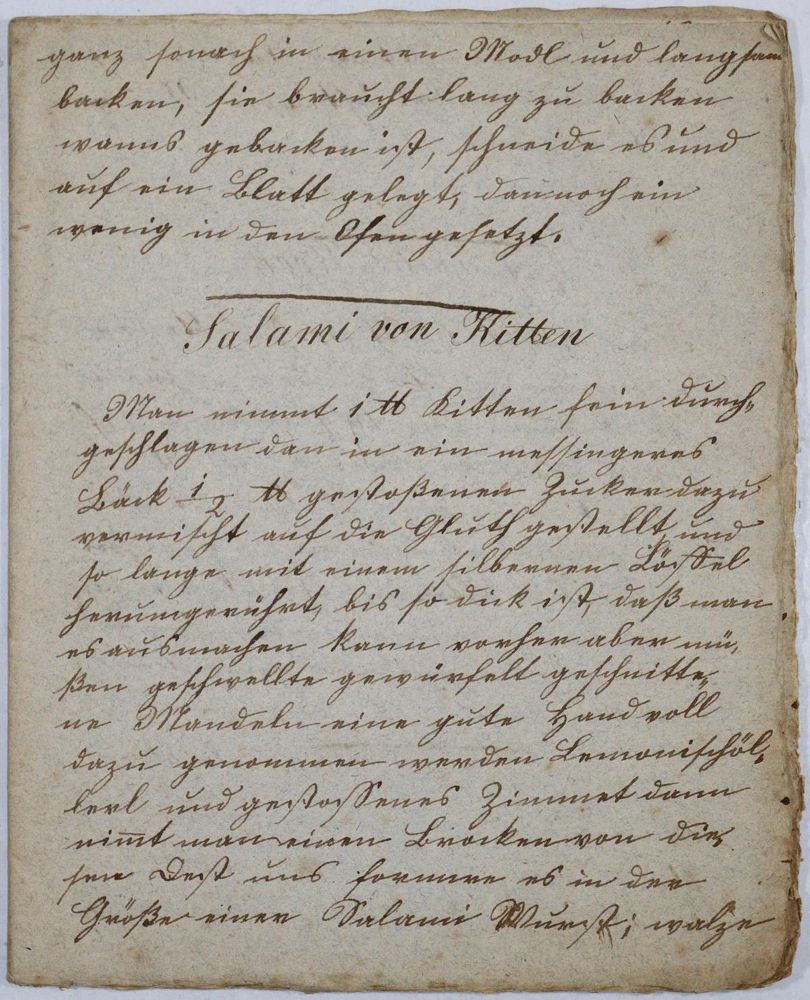 ganz sonach in einen Modl und langsam
backen, sie braucht lang zu backen
wanns gebacken ist, schneide es und
auf ein Blatt gelegt, dan noch ein
wenig in den Ofen gesetzt.
Salami von Kitten
Man nimmt 1 ℔ Kitten fein durch„
geschlagen dan in ein messingenes
Bäck 1/2 ℔ gestoßenen Zucker dazu
vermischt auf die Gluth gestellt und
so lange mit einem silbernen Löffel
herumgerührt, bis so dick ist, daß man
es ausmachen kann vorher aber mü„
ßen geschwellte gewürfelt geschnitte„
ne Mandeln eine gute Hand voll
dazu genommen werden Lemonischöl„
lerl und gestossenes Zimmet dann
nim̅t man einen Brocken von die„
sen und formire es in der
Größe einer Salami Wurst; walze